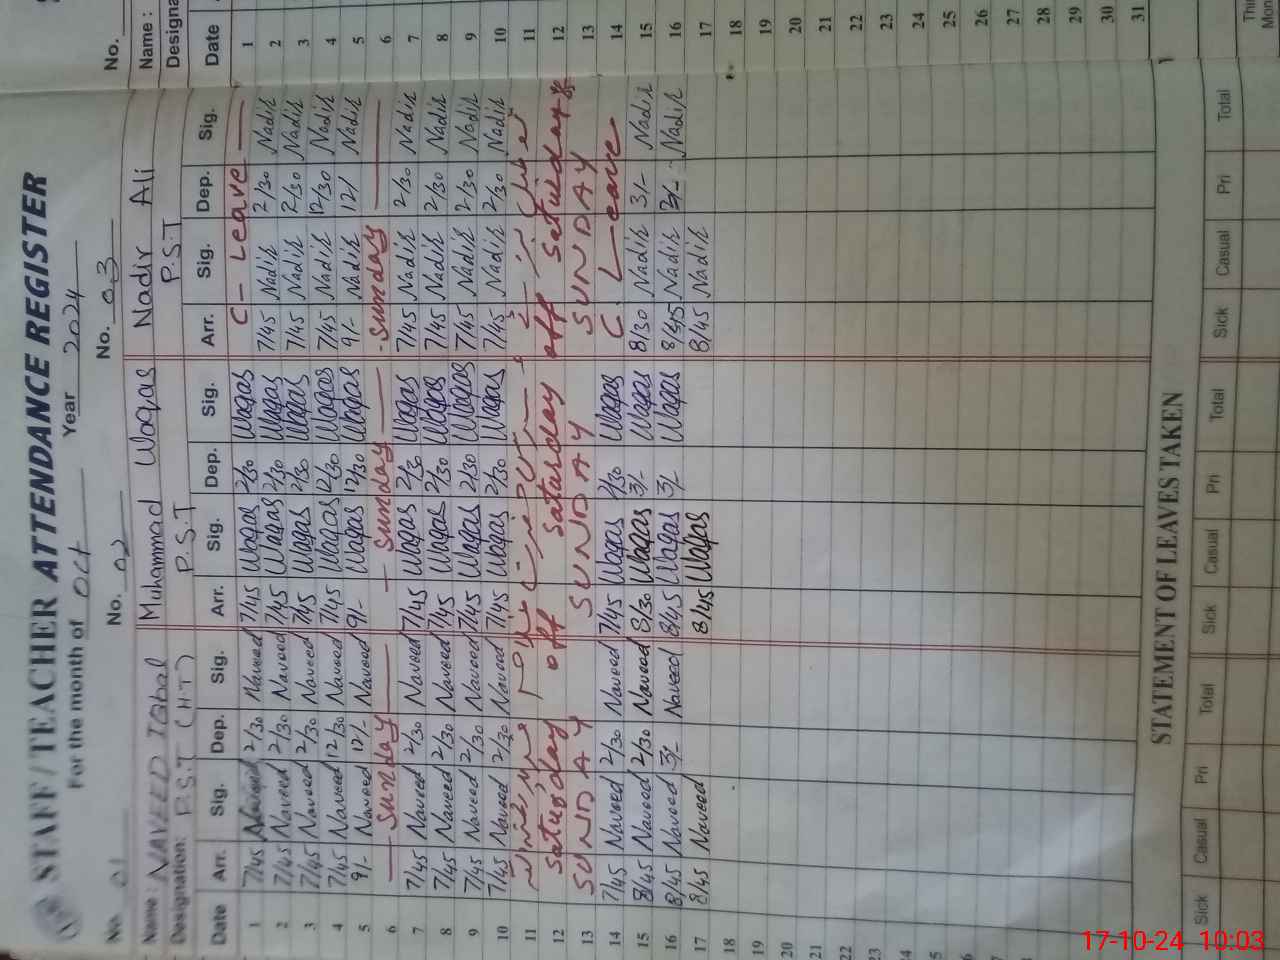 STAFF/TEACHER ATTENDANCE REGISTER
For the month of Oct Year 2024
No. 01 No. 02 No. 03 No.
Name: NAVEED Iqbal Muhammad Waqas Nadir Ali Name:
Designation: P.S.T (H.T) P.S.T P.S.T Designa
Date Arr. Sig. Dep. Sig. Arr. Sig. Dep. Sig. Arr. Sig. Dep. Sig. Date
1 7/45 Naveed 2/30 Naveed 7/45 Waqas 2/30 Waqas C - Leave 1
2 7/45 Naveed 2/30 Naveed 7/45 Waqas 2/30 Waqas 7/45 Nadir 2/30 Nadir 2
3 7/45 Naveed 2/30 Naveed 7/45 Waqas 2/30 Waqas 7/45 Nadir 2/30 Nadir 3
4 7/45 Naveed 12/30 Naveed 7/45 Waqas 12/30 Waqas 7/45 Nadir 12/30 Nadir 4
5 9/- Naveed 12/- Naveed 9/- Waqas 12/30 Waqas 9/- Nadir 12/ Nadir 5
6 Sunday Sunday Sunday 6
7 7/45 Naveed 2/30 Naveed 7/45 Waqas 2/30 Waqas 7/45 Nadir 2/30 Nadir 7
8 7/45 Naveed 2/30 Naveed 7/45 Waqas 2/30 Waqas 7/45 Nadir 2/30 Nadir 8
9 7/45 Naveed 2/30 Naveed 7/45 Waqas 2/30 Waqas 7/45 Nadir 2/30 Nadir 9
10 7/45 Naveed 2/30 Naveed 7/45 Waqas 2/30 Waqas 7/45 Nadir 2/30 Nadir 10
11 11
12 Saturday off Saturday off Saturday off 12
13 SUNDAY SUNDAY SUNDAY 13
14 7/45 Naveed 2/30 Naveed 7/45 Waqas 2/30 Waqas C. Leave 14
15 8/45 Naveed 2/30 Naveed 8/30 Waqas 3/- Waqas 8/30 Nadir 3/- Nadir 15
16 8/45 Naveed 3/- Naveed 8/45 Waqas 3/- Waqas 8/45 Nadir 3/- Nadir 16
17 8/45 Naveed 8/45 Waqas 8/45 Nadir 17
18 18
19 19
20 20
21 21
22 22
23 23
24 24
25 25
26 26
27 27
28 28
29
30
31
STATEMENT OF LEAVES TAKEN
Sick Casual Pri Total Sick Casual Pri Total Sick Casual Pri Total
17-10-24 10:03